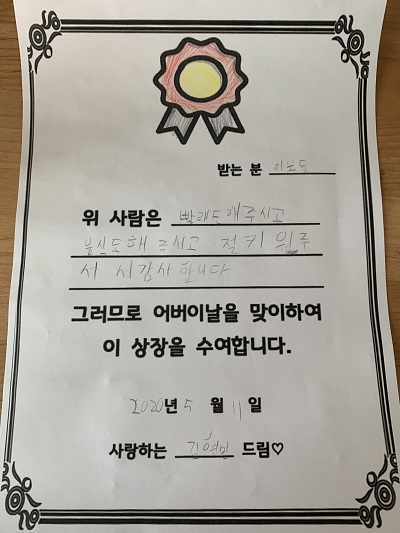 받는 분 이보둘
위 사람은 빨래도해주시고
음식도해 주시고 절 키워주
서 서감사합니다
그러므로 어버이날을 맞이하여
이 상장을 수여합니다.
2020년 5 월 11 일
사랑하는 김형민 드림♡